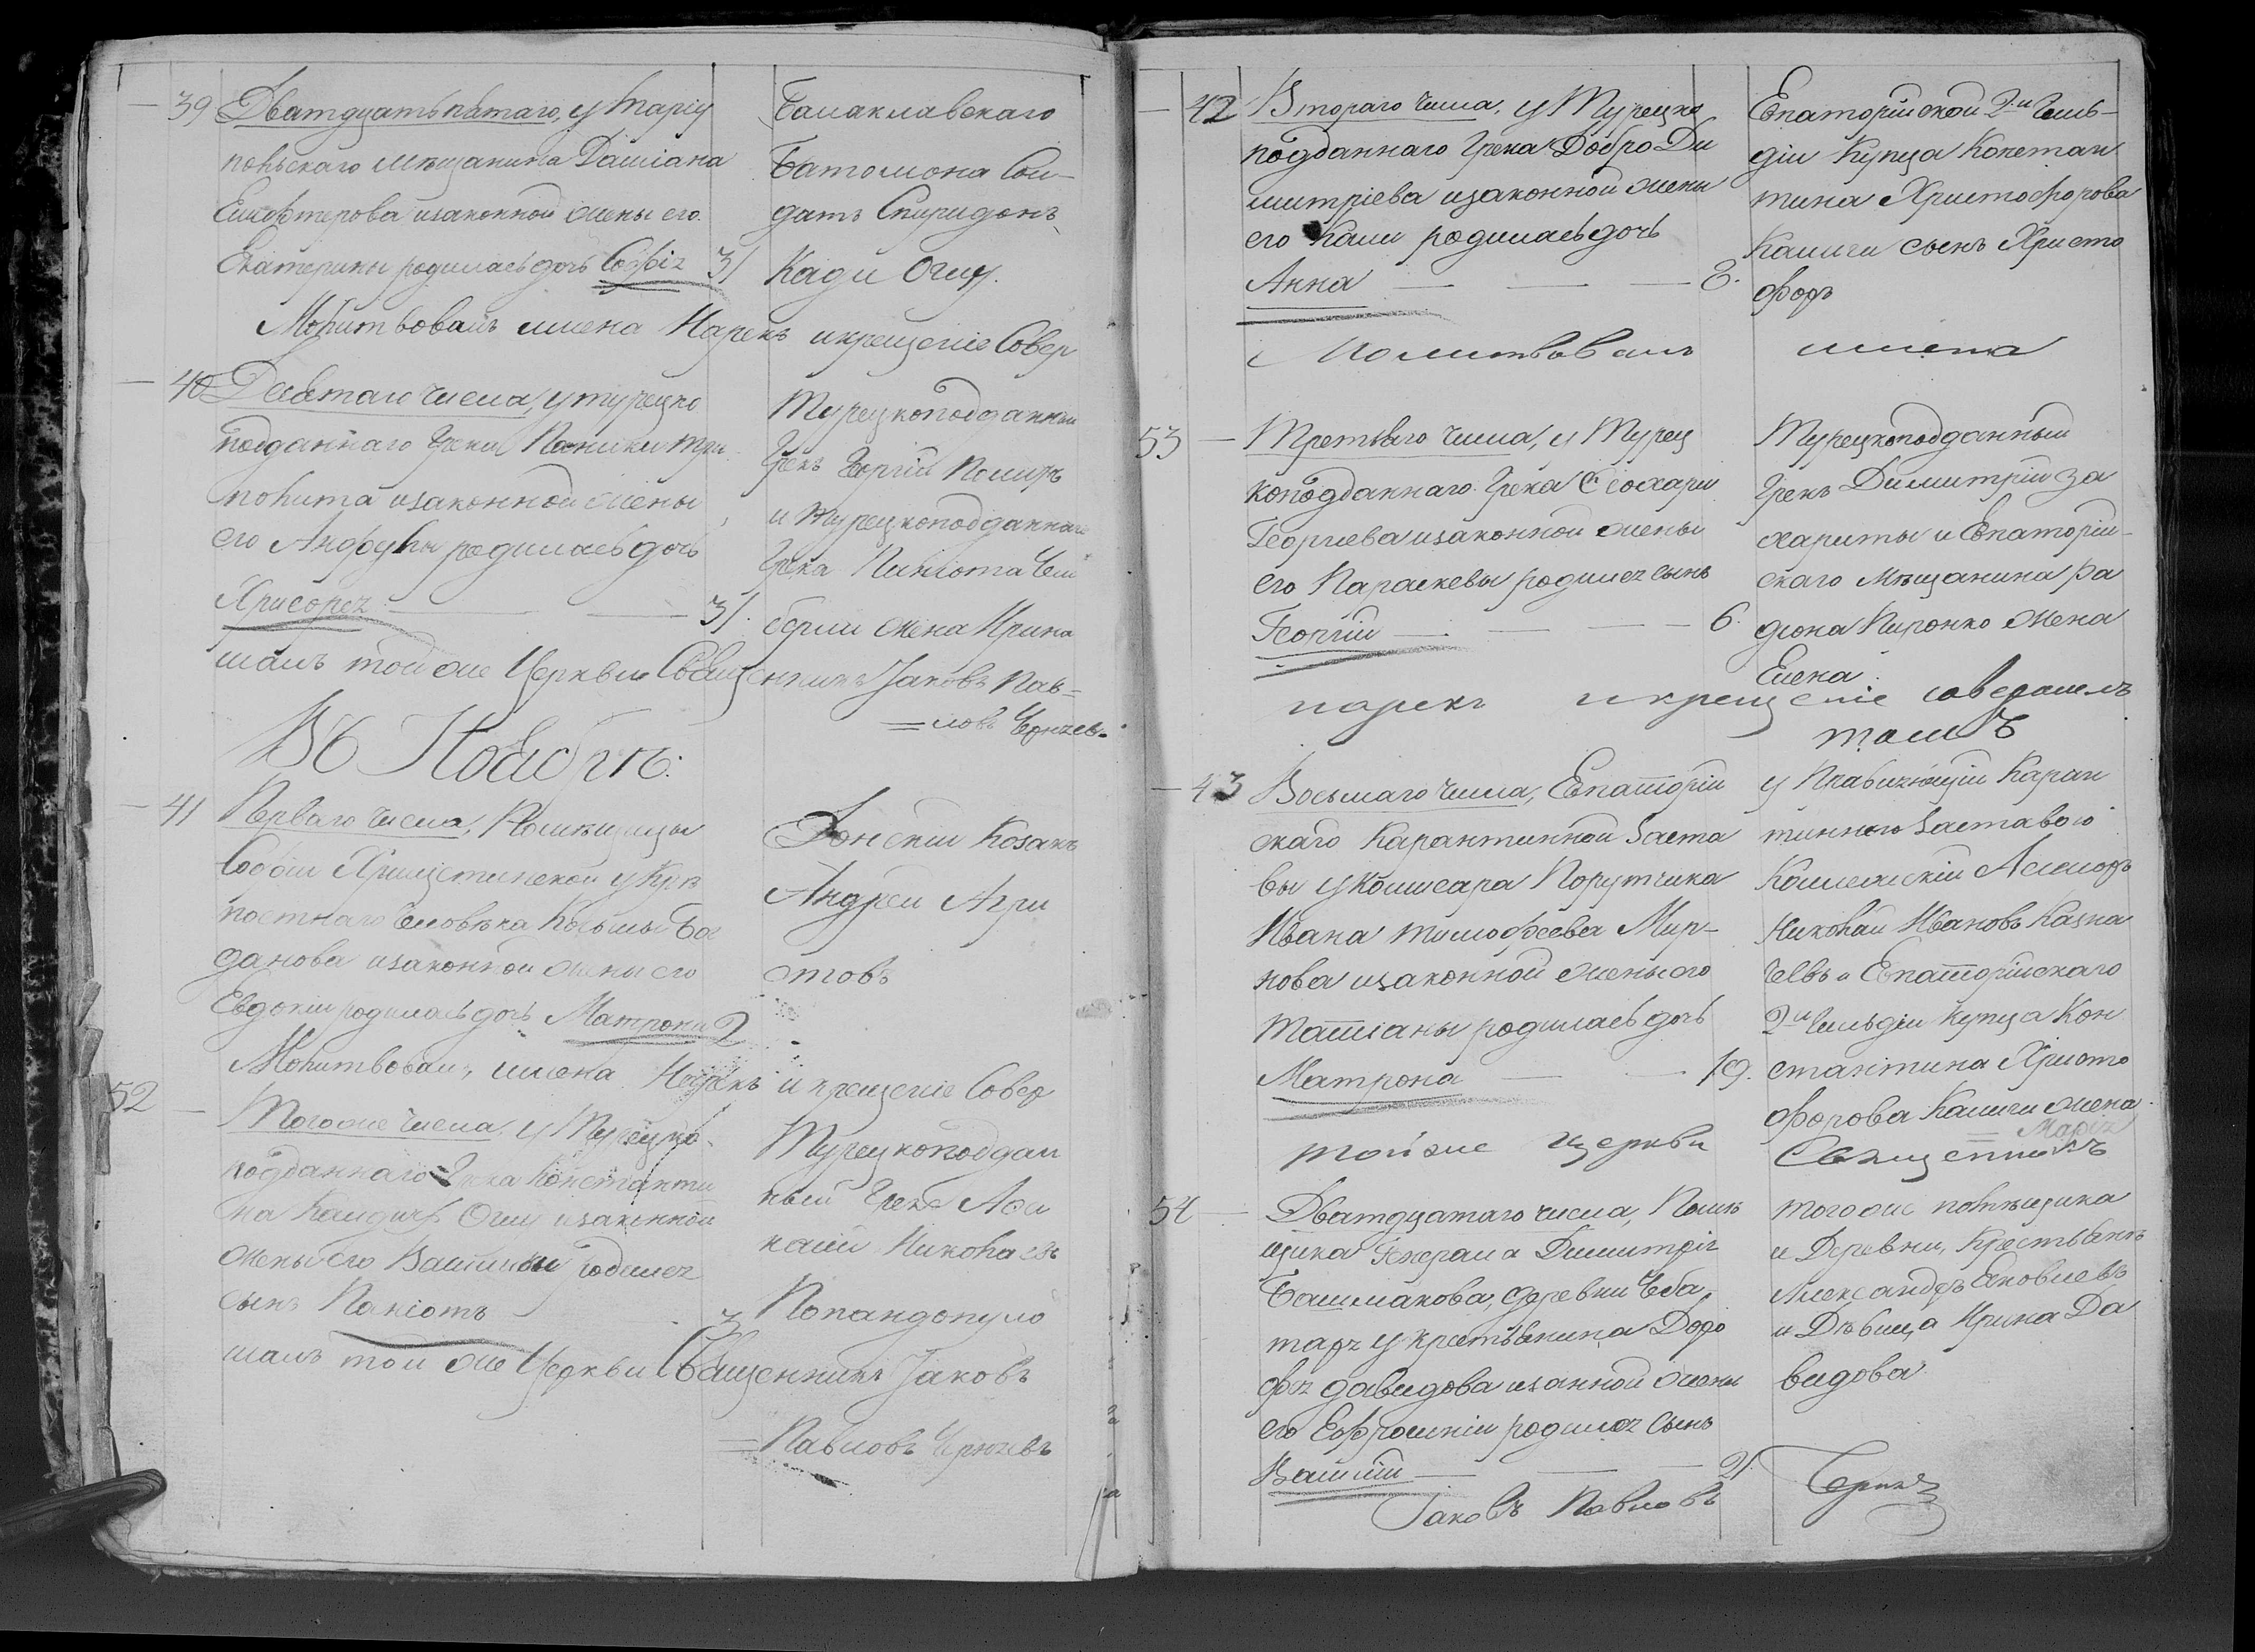 39 Дватдцать пятаго, у Маріу
польскаго мѣщанина Даміана
Елефтерова изаконной жены его
Екатерины родилась дочь Софія 31
Балаклавскаго
Баталиона Сол-
датъ Спиридонъ
Кади Оглу.
Молитвовалъ имена Нарекъ икрещеніе Совер
40 Десятаго числа, у турецко
подданнаго Грека Паники Три
полита изаконной жены
его Анфулы родилась дочь
Хрисорея 31.
Турецкоподданный
Грекъ Георгій
и турецкоподданнаго
Грека Паніота
жена Ирина
шалъ той же Церкви Священникъ Іаковъ Пав-
=ловъ Чернявъ.
Въ Ноябрѣ:
41 Перваго числа, Помѣщицы
Софіи у Крѣ
постнаго Человѣка Козьмы Бог
данова изаконной жены его
Евдокіи родилась дочь Матрона 2
Донской Козакъ
Андрей Агри
отовъ
Молитвовалъ, имена Нарекъ и крещеніе Совер
52 Тогоже числа у Турецко-
подданнаго Грека Константи
на Оглу изаконной
жены его родился
сынъ Паніотъ 3
Турецкоподдан
ный Грекъ
Николаевъ
Попандопуло
шалъ той же Церкви Священникъ Іаковъ
=Павловъ Чернявъ
42 Втораго числа, у Турецко
подданнаго Грека Добро Ди
митріева изаконной жены
его Кали родилась дочь
Анна 8.
Евпаторійской 2й Гиль-
діи Купца Констан
тина Христофорова
Калиги сынъ Христо
форъ
Молитвовалъ имена
53 Третьяго числа, у Турец
коподданнаго Грека
Георгиева изаконной жены
его Параскевы родился сынъ
Георгій 6.
Турецкоподданный
Грекъ Димитрій За
хариты и Евпаторій-
скаго Мѣщанина Ра
діона Пиронко жена
Елена.
нарекъ икрещеніе совершилъ
тамъ
43 Восьмаго числа, Евпаторій
скаго Карантинной Заста
вы у Комисара Порутчика
Ивана Тимофеева Мир-
нова изаконной жены его
Татіаны родилась дочь
Матрона 19.
у Правляющій Каран
тинною Заставою
Коллежскій Асесоръ
Николай Ивановъ Казна
чевъ и Евпаторійскаго
2й Гильдіи купца Кон
стантина Христо
форова Калиги жена
Марія
той же церкви Священникъ
54 Дватдцатаго числа, Помѣ
щика Генерала Димитрія
Башмакова, деревни Чеба,
таря у крестьянина Доро
фея Давидова изанной жены
его Ефросиніи родился сынъ
Василій 21.
тогоже помѣщика
и Деревни, Крестьянъ
Александръ Яковлевъ
и Дѣвица Ирина Да
видова
Іаковъ Павловъ Черняв